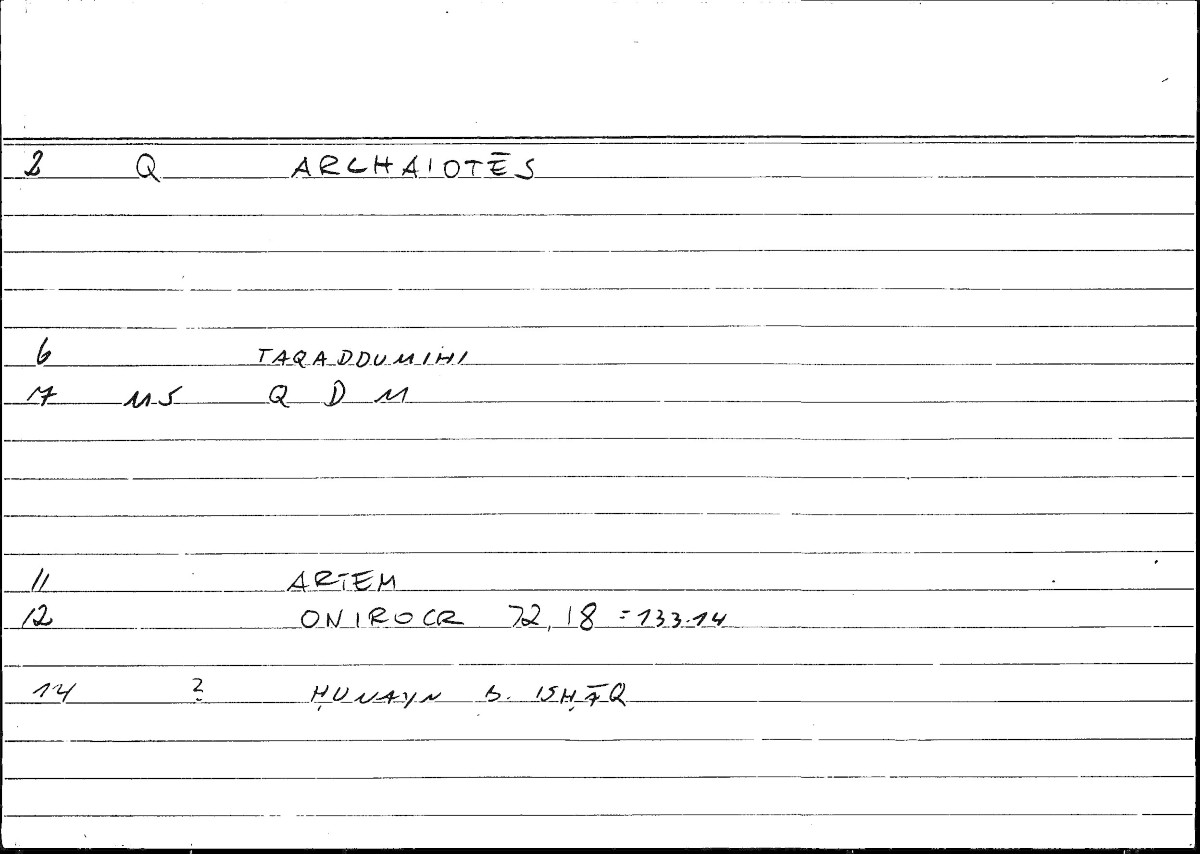 2 Q ARCHAIOTĒS
6 TAQADDUMIHI
7 M5 Q D M
11 ARTEM
12 ONIROCR 72,18 = 133.14
14 ? ḤUNAYN b. ISḤĀQ